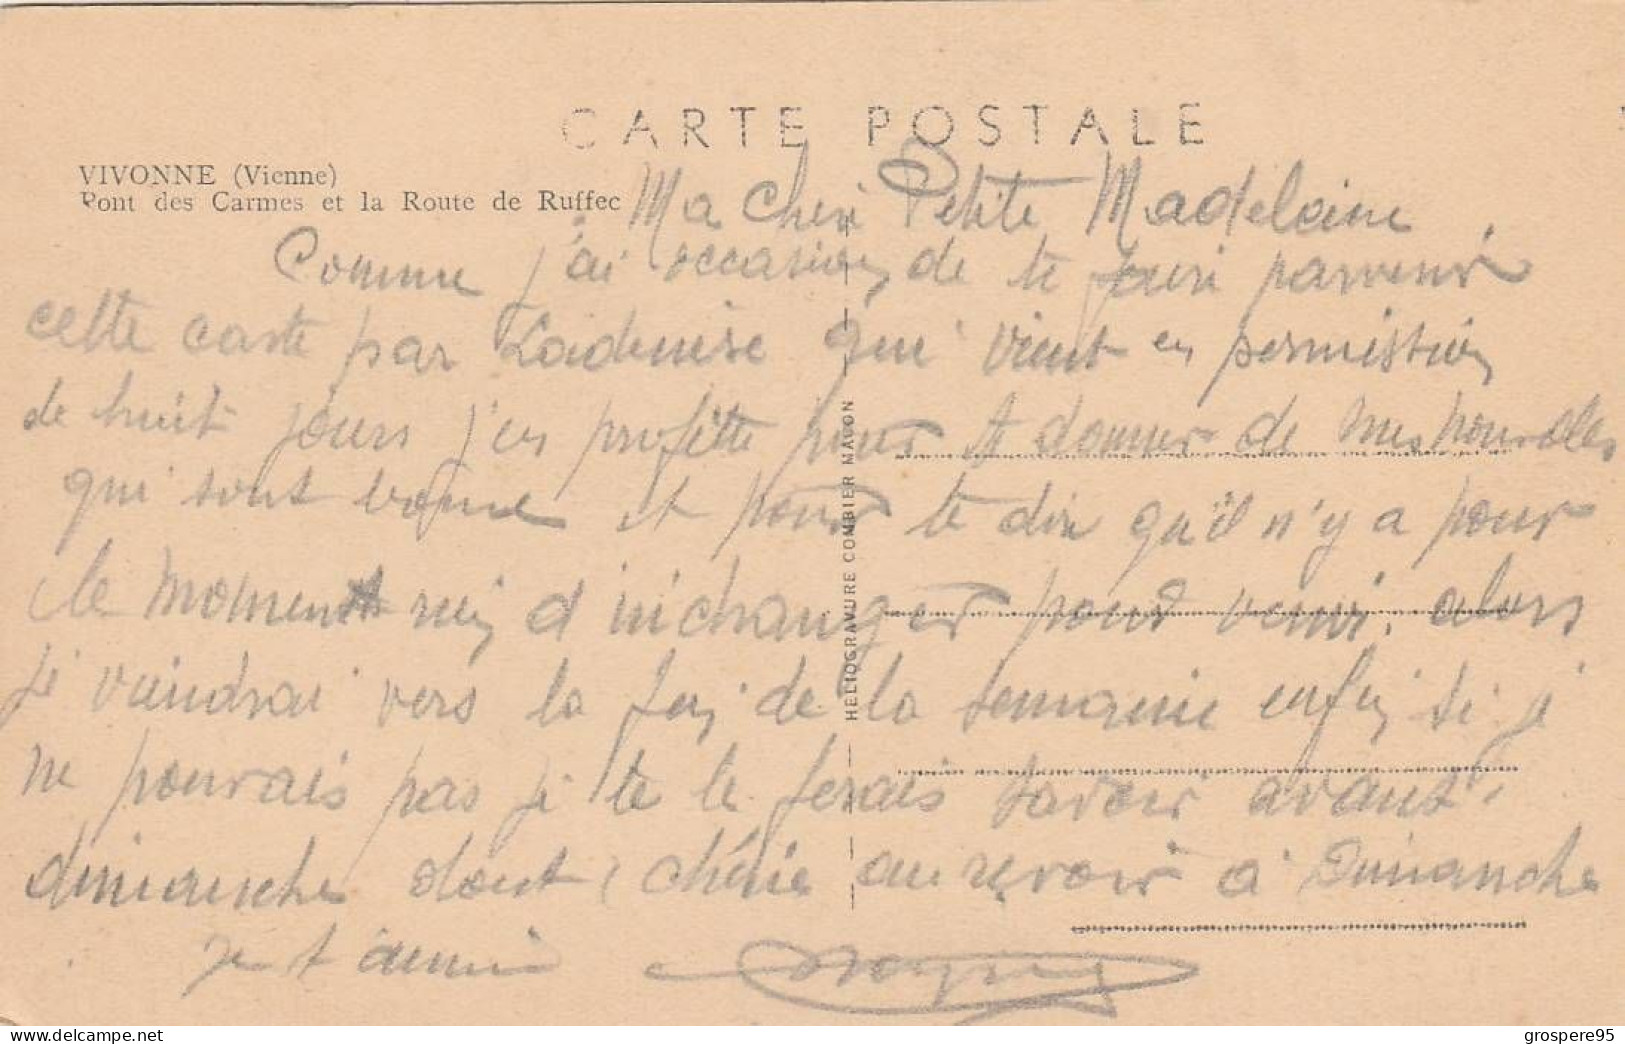 CARTE POSTALE
VIVONNE (Vienne)
Pont des Carmes et la Route de Ruffec
Ma Cheri Petite Madeleine
Comme j'ai occasion de te faire parvenir
cette carte par qui vient en permission
de huit jours j'en profitte pour te donner de mes nouvelles
qui sont bonne et pour te dire qu'il n'y a pour
le moment rien d'inchanger pour venir. alors
je viendrai vers la fin de la semaine enfin si je
ne pouvais pas je te le ferais savoir avant
dimanche dont chérie au revoir à Dimanche
je t'aime
HELIOGRAVURE COMBIER MACON
www.delcampe.net
grospere95